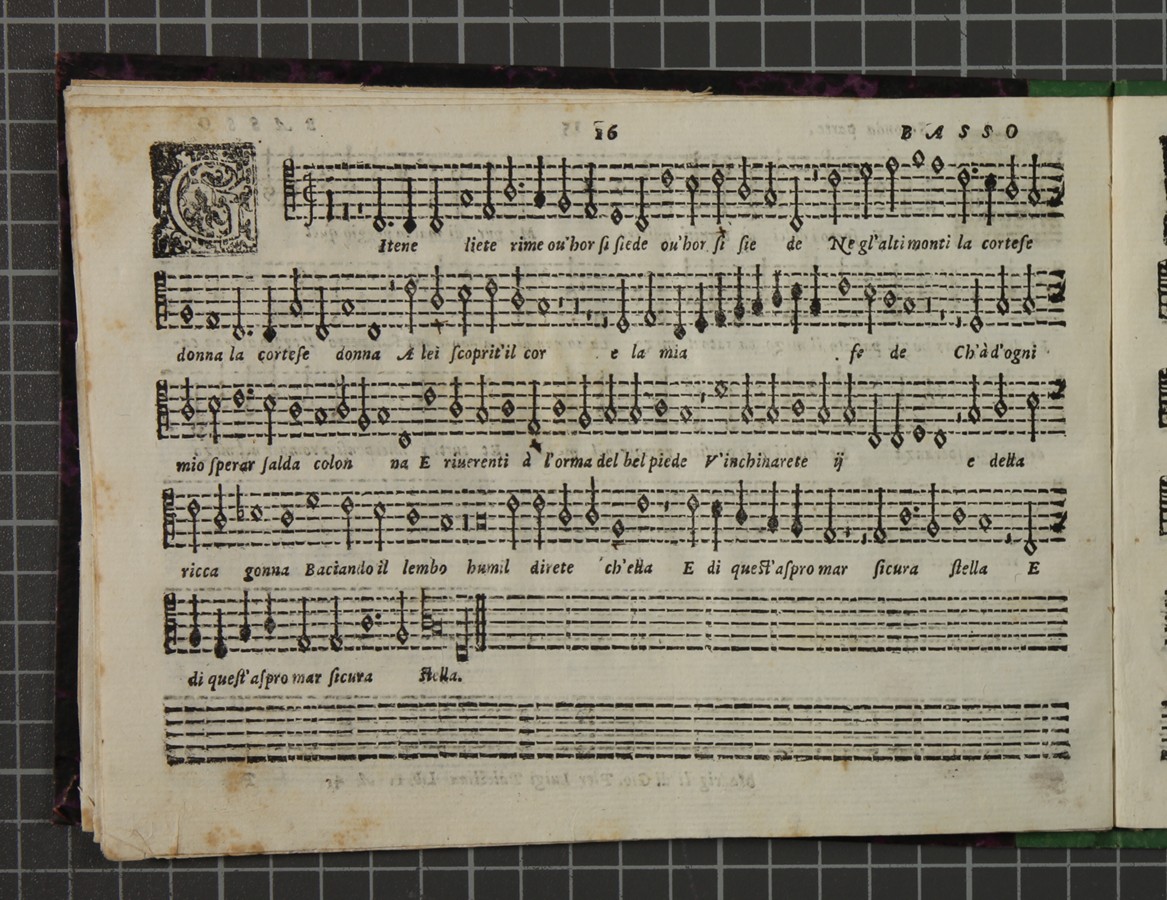 16 BASSO
GItene liete rime ou'hor ſi ſiede ou'hor ſi ſie de Ne gl'alti monti la corteſe
donna la corteſe donna A lei ſcoprit'il cor e la mia fe de Ch'à d'ogni
mio ſperar ſalda colon na E riuerenti à l'orma del bel piede V'inchinarete ij e della
ricca gonna Baciando il lembo humil direte ch'ella E di queſt'aſpro mar ſicura ſtella E
di queſt'aſpro mar ſicura ſtella.